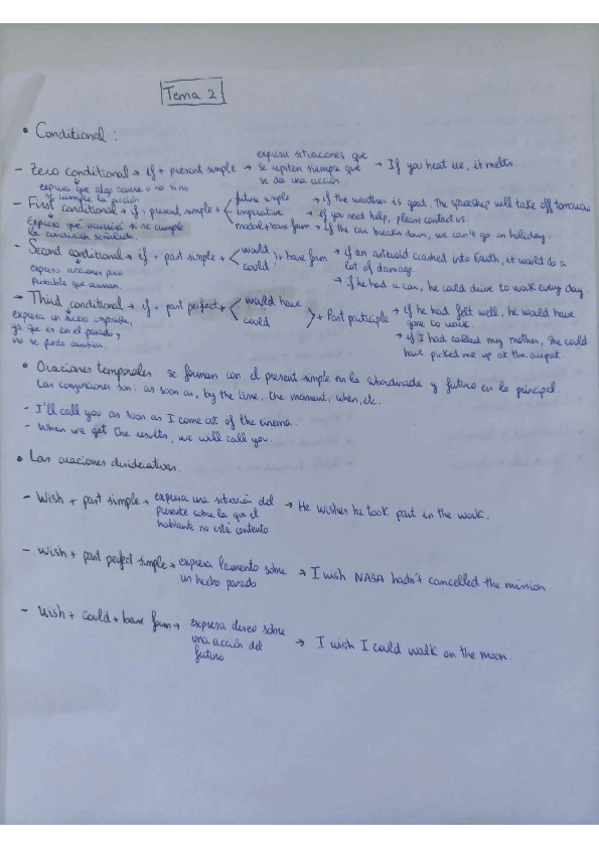 Tema 2
• Conditional :
expresa situaciones que
- Zero conditional → if + present simple → se repiten siempre que → If you heat ice, it melts.
se da una acción
expresa que algo ocurre o no si no
se cumple la acción
future simple → if the weather is good, the spaceship will take off tomorrow
- First conditional → if + present simple + < imperative → if you need help, please contact us.
Expresa qué ocurrirá si se cumple
la condición señalada.
modal + base form → if the car breaks down, we can't go on holiday.
- Second conditional → if + past simple + < would could } + base form → if an asteroid crashed into Earth, it would do a
lot of damage.
expresa acciones poco
probable que ocurran.
→ if he had a car, he could drive to work every day.
- Third conditional → if + past perfect + < would have could } + Past participle → if he had felt well, he would have
gone to work.
expresa un hecho imposible,
ya que es en el pasado y
no se puede cambiar.
→ if I had called my mother, she could
have picked me up at the airport.
• Oraciones temporales: se forman con el present simple en la subordinada y futuro en la principal.
Las conjunciones son: as soon as, by the time, the moment, when, etc.
- I'll call you as soon as I come out of the cinema.
- When we get the results, we will call you.
• Las oraciones desiderativas.
- Wish + past simple → expresa una situación del → He wishes he took part in the work.
presente sobre la que el
hablante no está contento
- Wish + past perfect simple → expresa lamento sobre → I wish NASA hadn't cancelled the mission
un hecho pasado
- Wish + could + base form → expresa deseo sobre
una acción del → I wish I could walk on the moon.
futuro